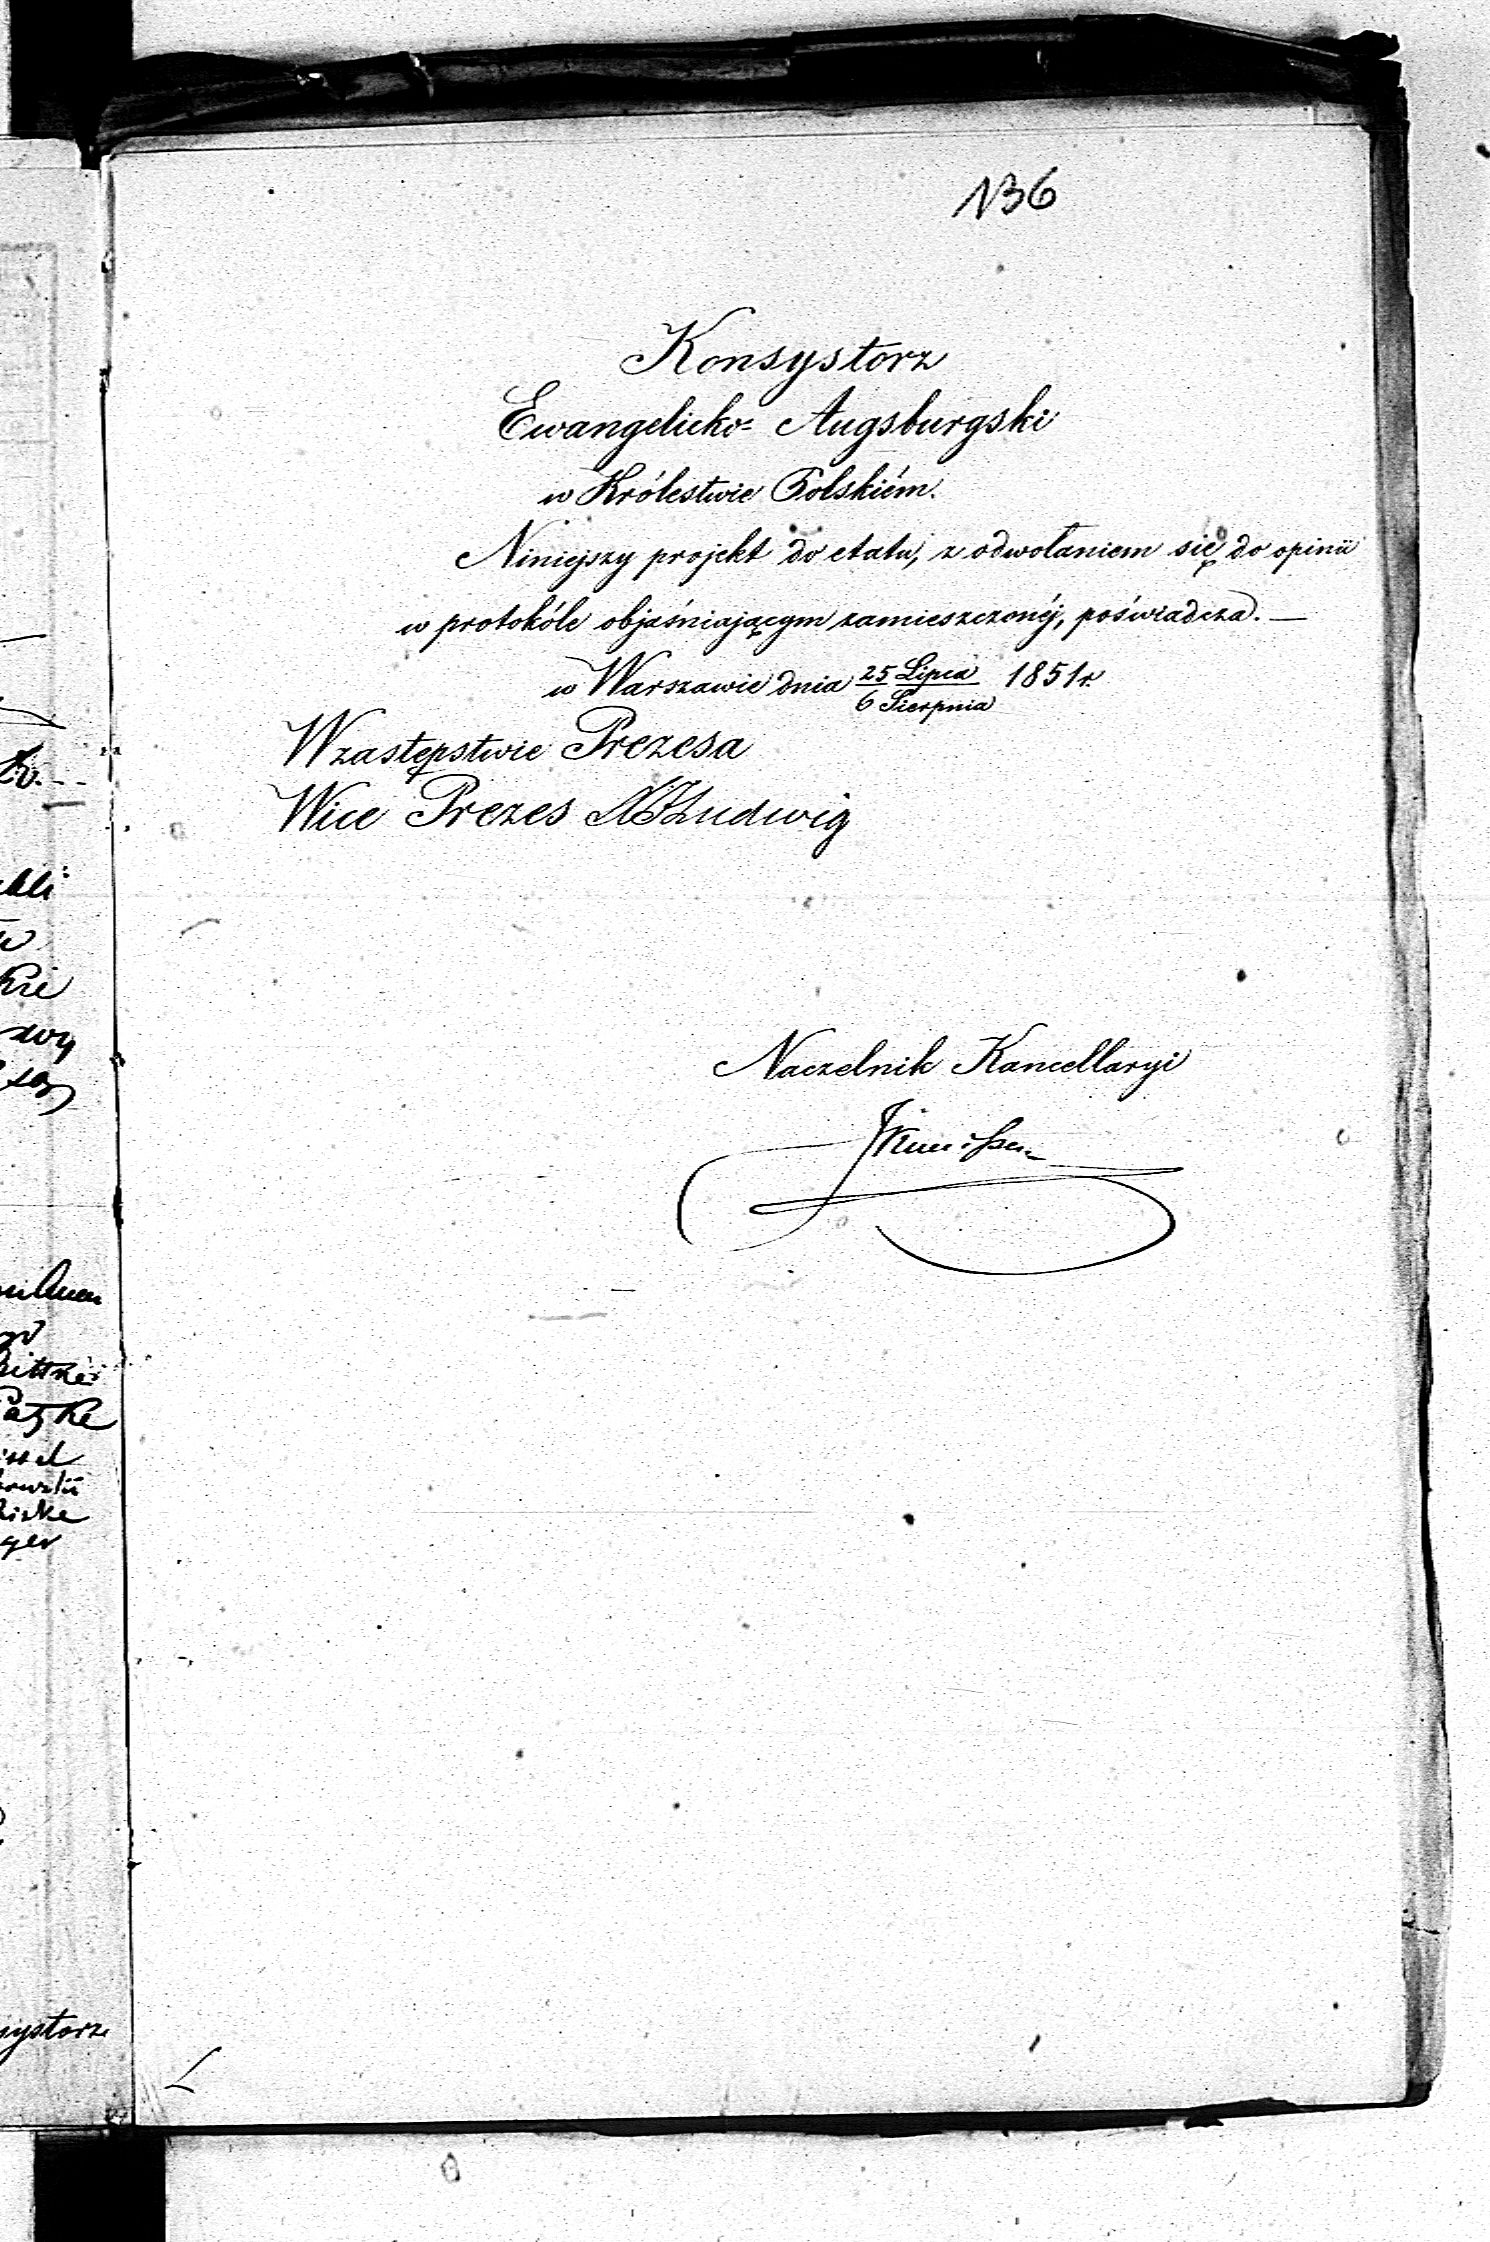 136
Konsystorz
Ewangelicko= Augsburgski
w Królestwie Polskiém.
Niniejszy projekt do etatu, z odwołaniem się do opinii
w protokóle objaśniającym zamieszczonéj, poświadcza. —
w Warszawie dnia 25 Lipca / 6 Sierpnia 1851 r.
W zastępstwie Prezesa
Wice Prezes Ludwig
Naczelnik Kancellaryi